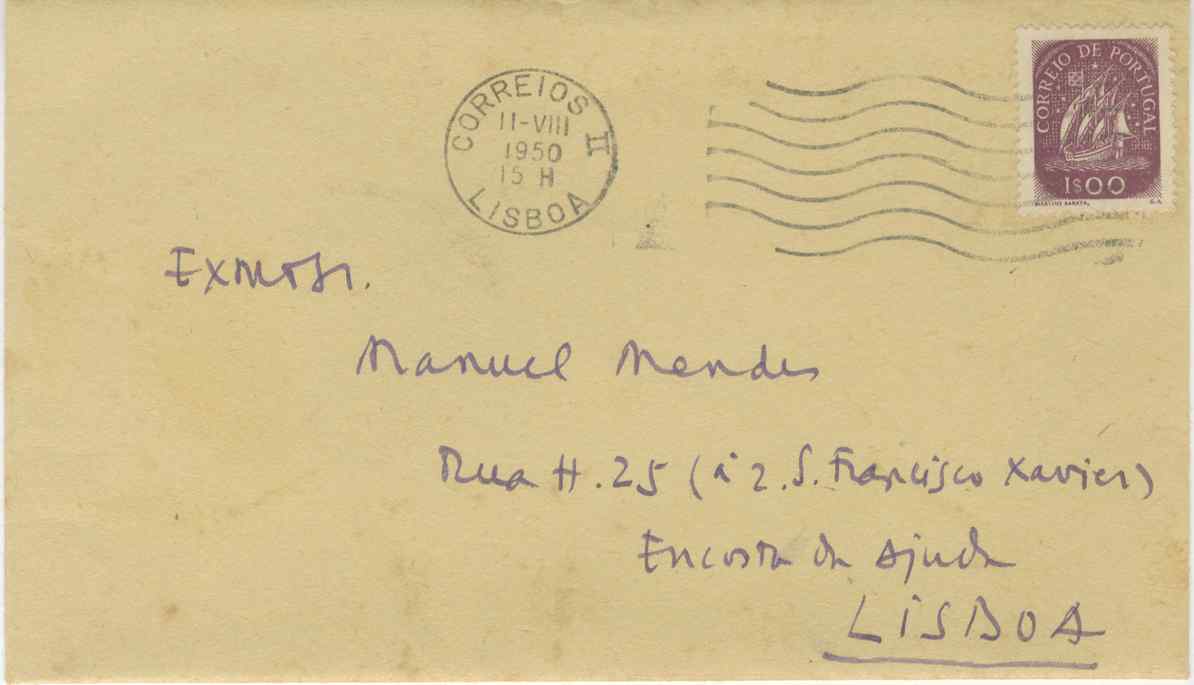 CORREIOS II
11-VIII
1950
15 H
LISBOA
CORREIO DE PORTUGAL
1$00
MARTINS BARATA,
Exmo Sr.
Manuel Mendes
Rua H. 25 (à R. S. Francisco Xavier)
Encosta da Ajuda
LISBOA